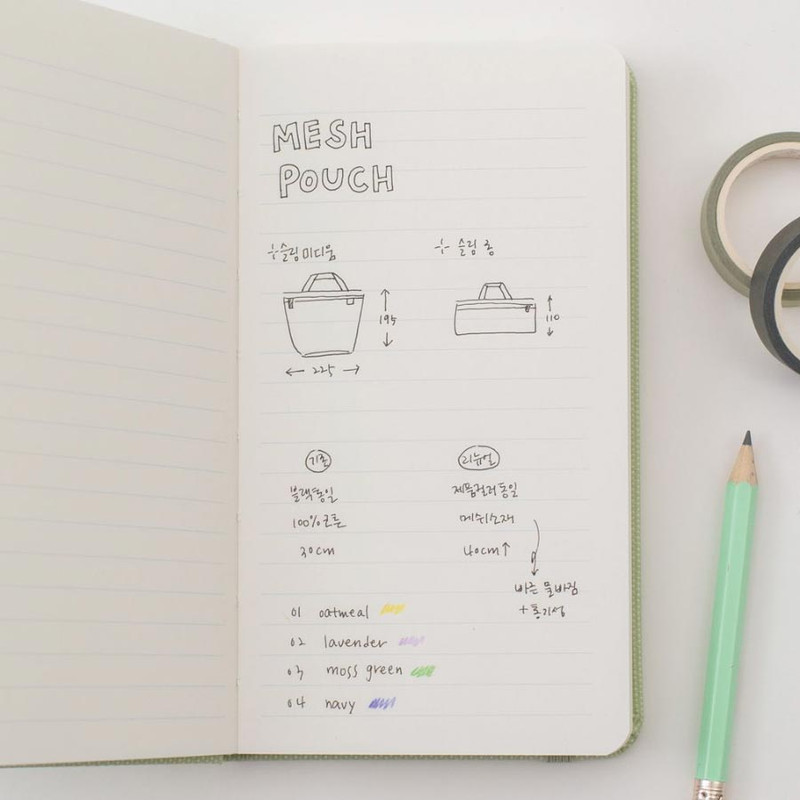 MESH
POUCH
슬링 미디움
슬링 롱
195
110
← 225 →
기존
리뉴얼
블랙통일
제품컬러통일
100% 코튼
메쉬소재
30cm
40cm↑
빠른 물빠짐
+ 통기성
01 oatmeal
02 lavender
03 moss green
04 navy